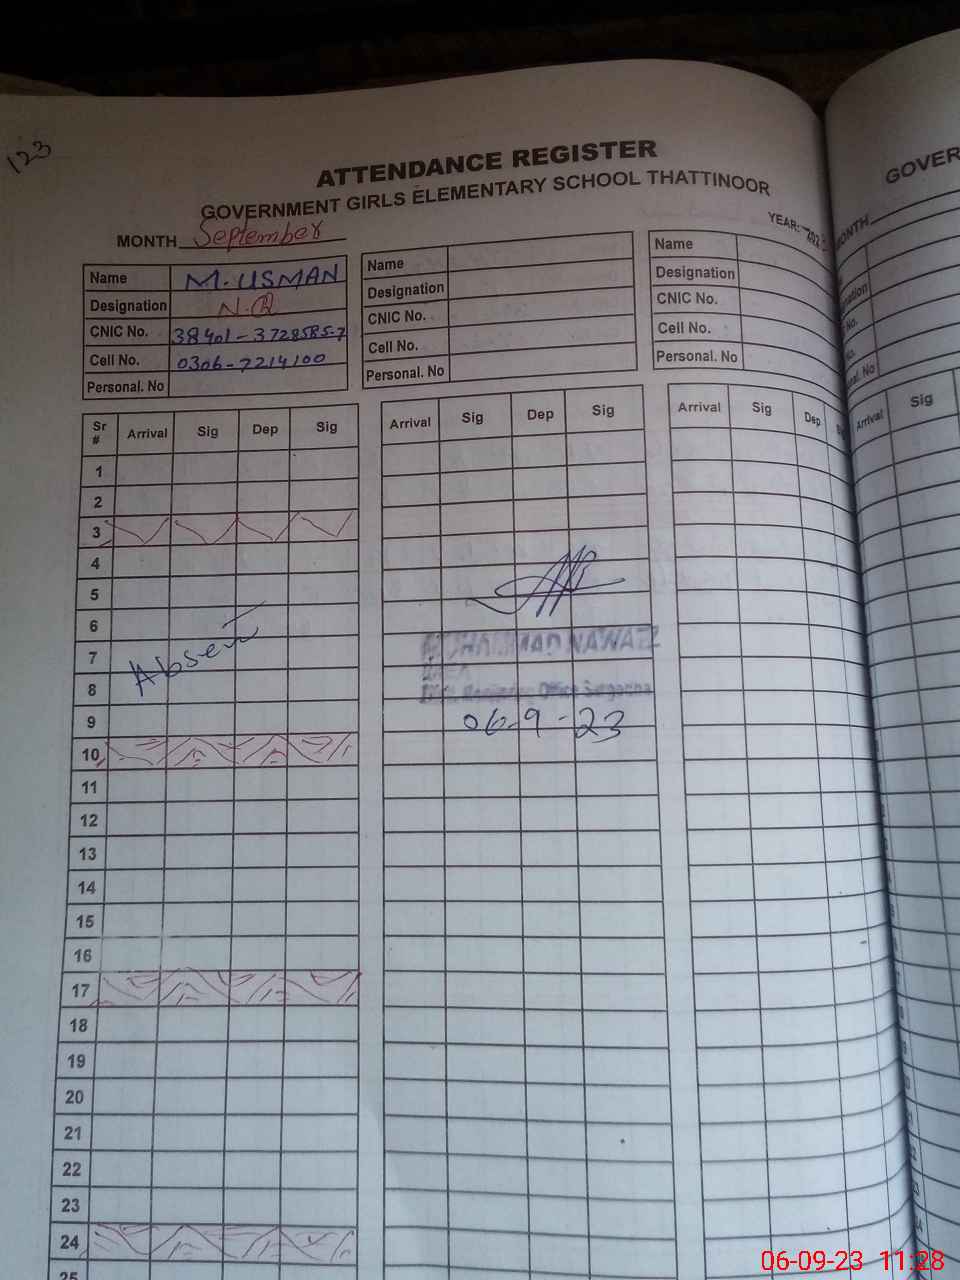 123
ATTENDANCE REGISTER
GOVERNMENT GIRLS ELEMENTARY SCHOOL THATTINOOR
MONTH September
YEAR: 202
Name M. USMAN
Designation N.Q
CNIC No. 38401-3728585-7
Cell No. 0306-7214100
Personal. No
Name
Designation
CNIC No.
Cell No.
Personal. No
Name
Designation
CNIC No.
Cell No.
Personal. No
Sr # Arrival Sig Dep Sig
Arrival Sig Dep Sig
Arrival Sig Dep
1
2
3
4
5
6
7
8
9
10
11
12
13
14
15
16
17
18
19
20
21
22
23
24
25
Absent
MUHAMMAD NAWAZ
06-9-23
GOVER
MONTH
No.
Arrival Sig
06-09-23 11:28